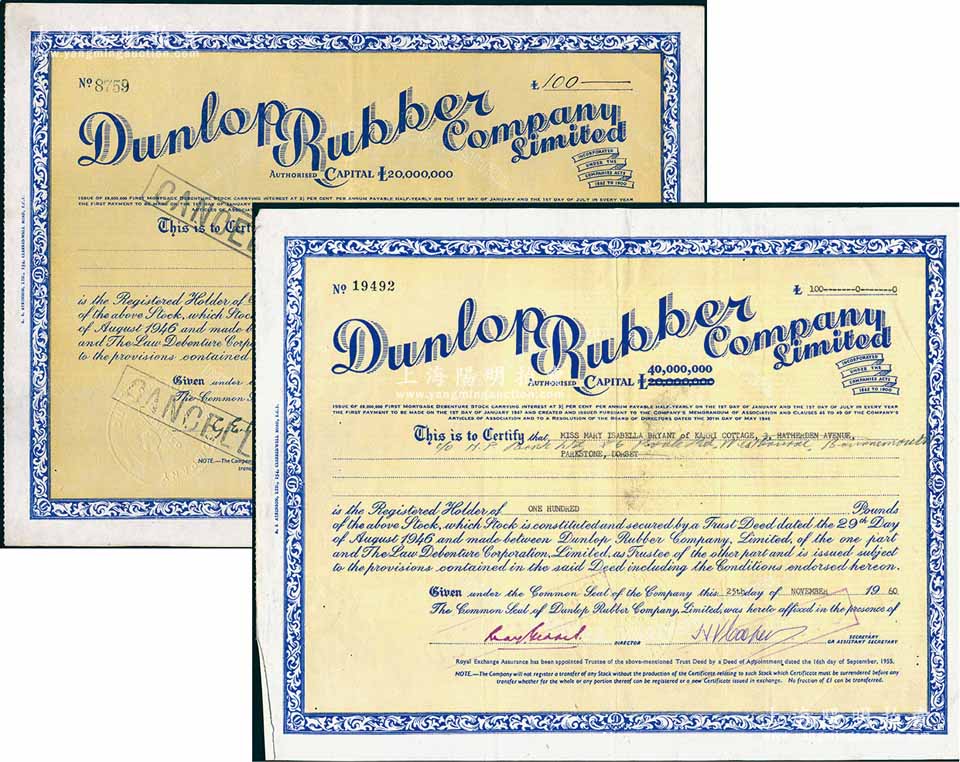 上海陽明拍賣
www.yangmingauction.com
No 8759
£ 100
Dunlop Rubber Company Limited
AUTHORISED CAPITAL £20,000,000
INCORPORATED
UNDER THE
COMPANIES ACTS
1862 TO 1900
ISSUE OF £8,000,000 FIRST MORTGAGE DEBENTURE STOCK CARRYING INTEREST AT 3½ PER CENT PER ANNUM PAYABLE HALF-YEARLY ON THE 1ST DAY OF JANUARY AND THE 1ST DAY OF JULY IN EVERY YEAR
THE FIRST PAYMENT TO BE MADE ON THE 1ST DAY OF JANUARY
ARTICLES OF ASSOCIA
CANCEL
This is to Certi
is the Registered Holder of
of the above Stock, which Stock
of August 1946 and made b
and The Law Debenture Corp
to the provisions contained
CANCELL
Given under
The Common S
NOTE.—The Compan
trans
No 19492
£ 100-------0-------0
Dunlop Rubber Company Limited
40,000,000
AUTHORISED CAPITAL £20,000,000
INCORPORATED
UNDER THE
COMPANIES ACTS
1862 TO 1900
ISSUE OF £8,000,000 FIRST MORTGAGE DEBENTURE STOCK CARRYING INTEREST AT 3½ PER CENT PER ANNUM PAYABLE HALF-YEARLY ON THE 1ST DAY OF JANUARY AND THE 1ST DAY OF JULY IN EVERY YEAR
THE FIRST PAYMENT TO BE MADE ON THE 1ST DAY OF JANUARY 1947 AND CREATED AND ISSUED PURSUANT TO THE COMPANY'S MEMORANDUM OF ASSOCIATION AND CLAUSES 45 TO 49 OF THE COMPANY'S
ARTICLES OF ASSOCIATION AND TO A RESOLUTION OF THE BOARD OF DIRECTORS DATED THE 30TH DAY OF MAY 1946
This is to Certify that MISS MARY ISABELLA BRYANT of KARRI COTTAGE, 3, HATHERDEN AVENUE,
Westbourne, Bournemouth
PARKSTONE, DORSET
is the Registered Holder of ONE HUNDRED Pounds
of the above Stock, which Stock is constituted and secured by a Trust Deed dated the 29th Day
of August 1946 and made between Dunlop Rubber Company, Limited, of the one part
and The Law Debenture Corporation, Limited, as Trustee of the other part and is issued subject
to the provisions contained in the said Deed including the Conditions endorsed hereon.
Given under the Common Seal of the Company this 25th day of NOVEMBER 1960
The Common Seal of Dunlop Rubber Company, Limited, was hereto affixed in the presence of
DIRECTOR
SECRETARY
OR ASSISTANT SECRETARY
Royal Exchange Assurance has been appointed Trustee of the above-mentioned Trust Deed by a Deed of Appointment dated the 16th day of September, 1955.
NOTE.—The Company will not register a transfer of any Stock without the production of the Certificate relating to such Stock which Certificate must be surrendered before any
transfer whether for the whole or any portion thereof can be registered or a new Certificate issued in exchange. No fraction of £1 can be transferred.